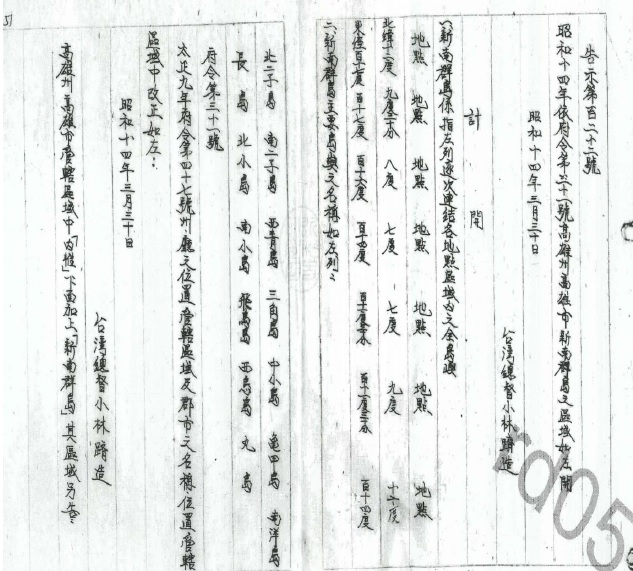 告示第百二十二號
昭和十四年依府令第三十一號高雄州高雄市新南群島之區域如左開
昭和十四年三月三十日
台灣總督小林躋造
計開
一、新南群島係指左列逐次連結各地點區域內之全島嶼
地點 地點 地點 地點 地點 地點 地點
北緯十二度 九度三十分 八度 七度 七度 九度 十二度
東經百十七度 百十七度 百十六度 百十四度 百十一度三十分 百十一度三十分 百十四度
二、新南群島主要島嶼之名稱如左列:
北二子島 南二子島 西青島 三角島 中小島 龜甲島 南洋島
長島 北小島 南小島 飛鳥島 西鳥島 丸島
府令第三十一號
太正九年府令第四十七號州、廳之位置管轄區域及郡市之名稱、位置、管轄
區域中改正如左:
昭和十四年三月三十日
台灣總督小林躋造
高雄州高雄市管轄區域中「內惟」下面加上「新南群島」其區域另告。
51
rd05